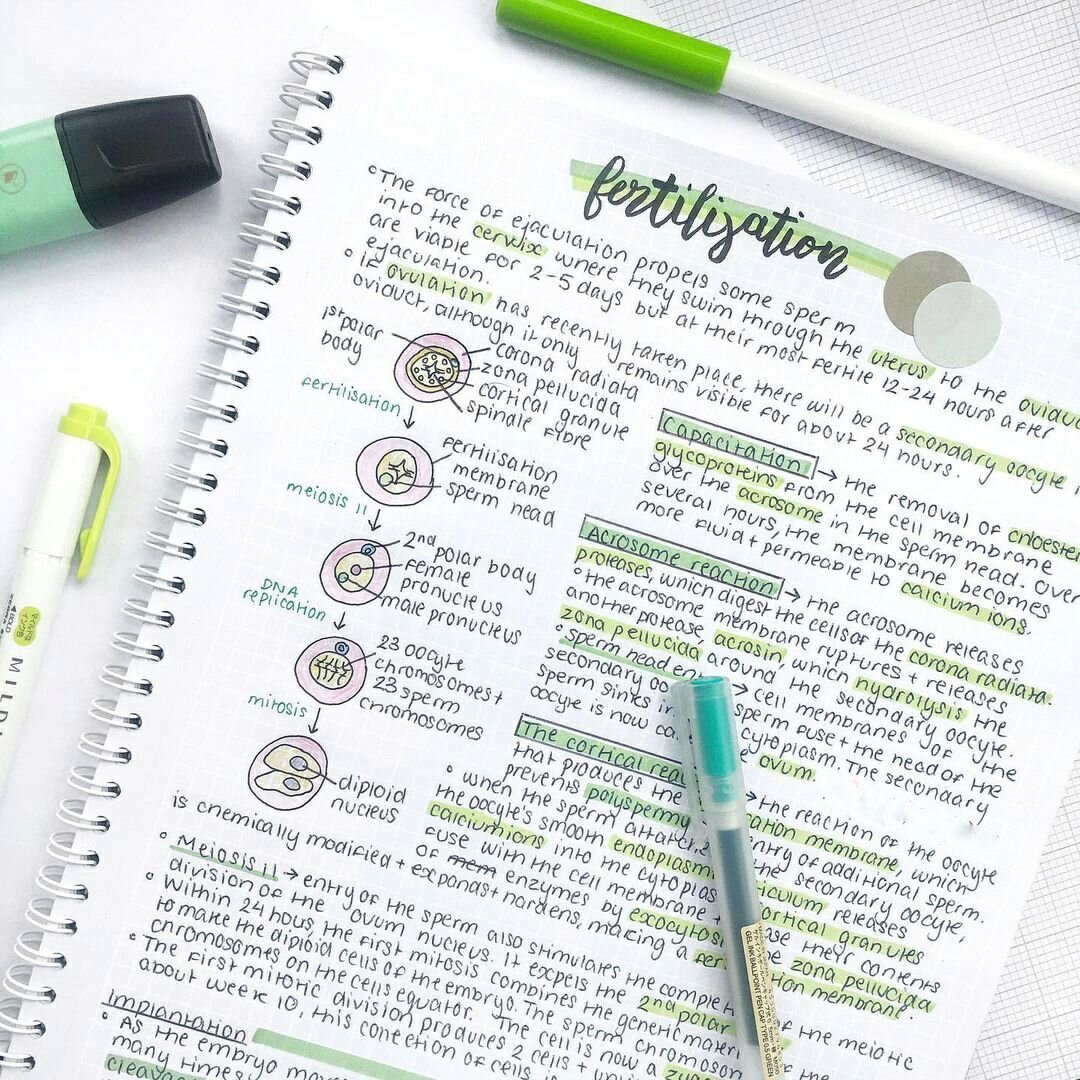 fertilisation
°The force of ejaculation propels some sperm
into the cervix where they swim through the uterus to the oviduc
are viable for 2-5 days but at their most fertile 12-24 hours after
ejaculation.
° If ovulation has recently taken place, there will be a secondary oocyte i
oviduct, although it only remains visible for about 24 hours.
1st polar
body
corona radiata
zona pellucida
cortical granule
spindle fibre
fertilisation
fertilisation
membrane
sperm head
meiosis II
2nd polar body
female
pronucleus
male pronucleus
DNA
replication
23 oocyte
chromosomes +
23 sperm
chromosomes
mitosis
diploid
nucleus
Capacitation → the removal of cholester
glycoproteins from the cell membrane
over the acrosome in the sperm head. Over
several hours, the membrane becomes
more fluid + permeable to calcium ions.
Acrosome reaction → the acrosome releases
proteases, which digest the cells of the corona radiata.
° the acrosome membrane ruptures + releases
another protease acrosin, which hydrolysis the
zona pellucida around the secondary oocyte.
° sperm head en → cell membranes of the
secondary oo sperm fuse + the head of the
sperm sinks in cytoplasm. The secondary
oocyte is now ca ovum.
The cortical reac → the reaction of the oocyte
that produces the cation membrane, which
prevents polyspermy entry of additional sperm.
° When the sperm attaches the secondary oocyte,
the oocyte's smooth endoplasm iculum releases
calcium ions into the cytoplas cortical granules
fuse with the cell membrane + ase their contents
of mem enzymes by exocytosi e zona pellucida
is chemically modified + expands + hardens, making a fer ion membrane.
° Meiosis II → entry of the sperm also stimulates the complet of the meiotic
division of the ovum nucleus. It expels the 2nd polar
° Within 24 hours, the first mitosis combines the genetic materi
to make the diploid cells of the embryo. The sperm chromoson
chromosomes on the cells equator. The cell is now a zyg
° The first mitotic division produces 2 cells +
about week 10, this collection of cells is
Implantation
° As the embryo
many times
cleava
MILD
BOLD
GEL INK BALLPOINT PEN CAP TYPE 0.5 GREEN